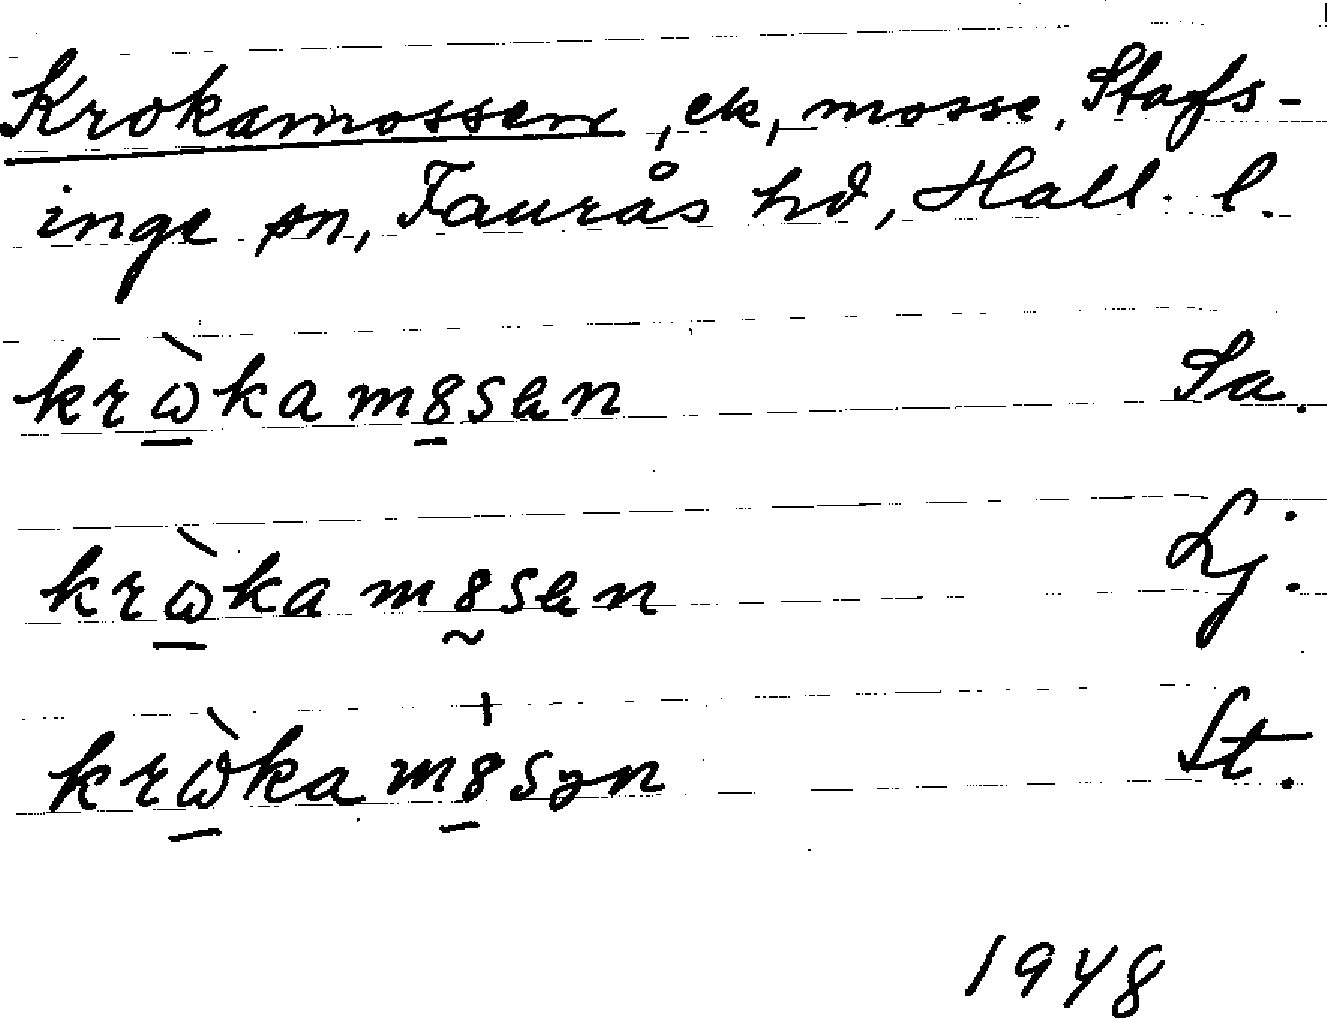 Krokamossen, ek, mosse, Stafs-
inge sn, Faurås hd, Hall. l.
krὼkam8sან Sa.
krὼkam8sან Lj.
krὼkam8sən St.
1948